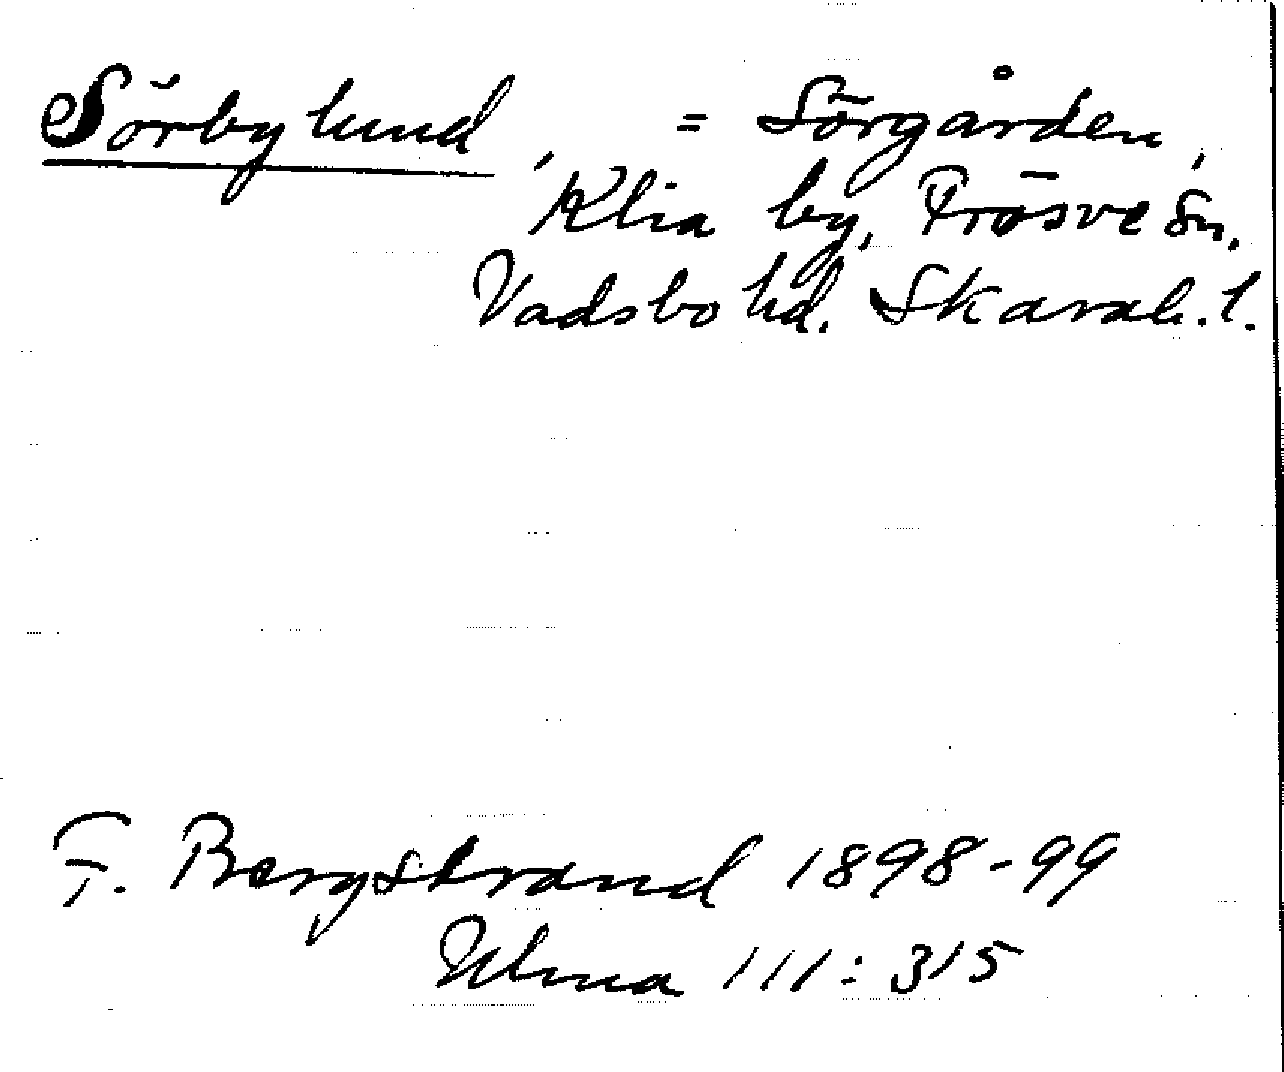 Sörbylund, = Sörgården,
Klia by, Frösve Sn.
Vadsbo hd. Skarab. l.
F. Bergstrand 1898-99
Ulma 111:315